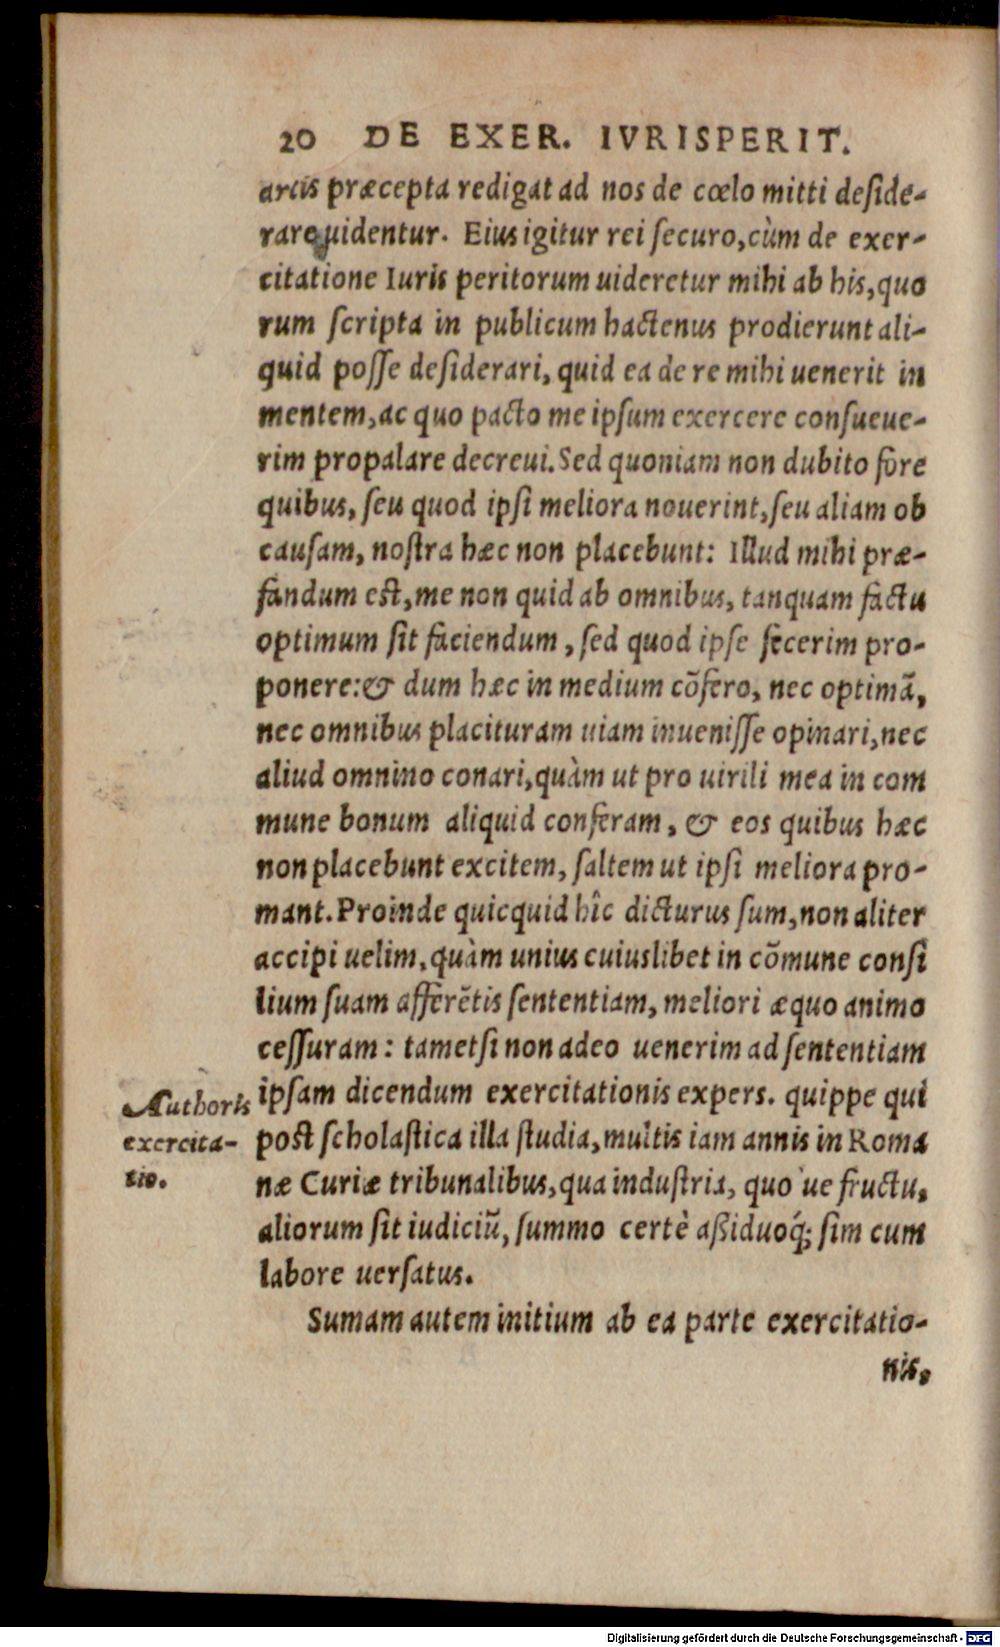 20 DE EXER. IVRISPERIT.
artis præcepta redigat ad nos de cœlo mitti deſide-
rare uidentur. Eius igitur rei ſecuro, cùm de exer-
citatione Iuris peritorum uideretur mihi ab his, quo
rum ſcripta in publicum hactenus prodierunt ali-
quid poſſe deſiderari, quid ea de re mihi uenerit in
mentem, ac quo pacto me ipſum exercere conſueue-
rim propalare decreui. Sed quoniam non dubito fore
quibus, ſeu quod ipſi meliora nouerint, ſeu aliam ob
cauſam, noſtra hæc non placebunt: Illud mihi præ-
fandum eſt, me non quid ab omnibus, tanquam factu
optimum ſit faciendum, ſed quod ipſe fecerim pro-
ponere: & dum hæc in medium cõfero, nec optimã,
nec omnibus placituram uiam inueniſſe opinari, nec
aliud omnino conari, quàm ut pro uirili mea in com
mune bonum aliquid conferam, & eos quibus hæc
non placebunt excitem, ſaltem ut ipſi meliora pro-
mant. Proinde quicquid hîc dicturus ſum, non aliter
accipi uelim, quàm unius cuiuslibet in cõmune conſi
lium ſuam afferẽtis ſententiam, meliori æquo animo
ceſſuram: tametſi non adeo uenerim ad ſententiam
ipſam dicendum exercitationis expers. quippe qui
poſt ſcholaſtica illa ſtudia, multis iam annis in Roma
næ Curiæ tribunalibus, qua induſtria, quo ue fructu,
aliorum ſit iudiciũ, ſummo certè aßiduoq́; ſim cum
labore uerſatus.
Authoris
exercita-
tio.
Sumam autem initium ab ea parte exercitatio-
nis,
Digitalisierung gefördert durch die Deutsche Forschungsgemeinschaft - DFG